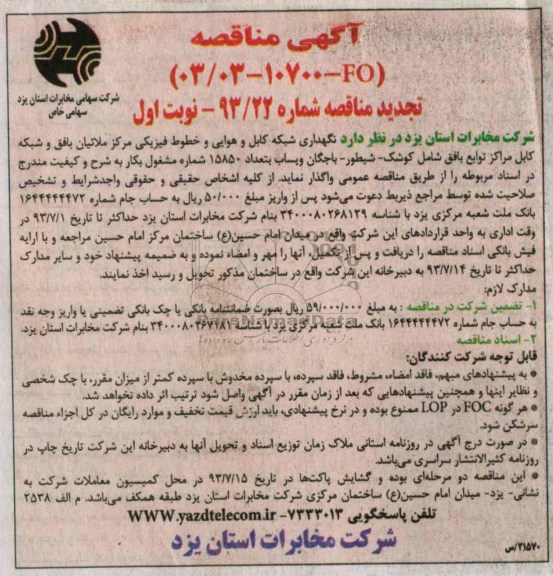 آگهی مناقصه
(۰۳/۰۳-۱۰۷۰۰-FO)
تجدید مناقصه شماره ۹۳/۲۲ - نوبت اول
شرکت سهامی مخابرات استان یزد
سهامی خاص
شرکت مخابرات استان یزد در نظر دارد نگهداری شبکه کابل و هوایی و خطوط فیزیکی مرکز ملائیان بافق و شبکه
کابل مراکز توابع بافق شامل کوشک- شیطور- باجگان ویساب بتعداد ۱۵۸۵۰ شماره مشغول بکار به شرح و کیفیت مندرج
در اسناد مربوطه را از طریق مناقصه عمومی واگذار نماید. از کلیه اشخاص حقیقی و حقوقی واجدشرایط و تشخیص
صلاحیت شده توسط مراجع ذیربط دعوت می‌شود پس از واریز مبلغ ۵۰/۰۰۰ ریال به حساب جام شماره ۱۶۴۴۴۴۴۴۷۲
بانک ملت شعبه مرکزی یزد با شناسه ۳۴۰۰۰۸۰۲۶۸۱۲۹ بنام شرکت مخابرات استان یزد حداکثر تا تاریخ ۹۳/۷/۱ در
وقت اداری به واحد قراردادهای این شرکت واقع در میدان امام حسین(ع) ساختمان مرکز امام حسین مراجعه و با ارایه
فیش بانکی اسناد مناقصه را دریافت و پس از تکمیل، آنها را مهر و امضاء نموده و به ضمیمه پیشنهاد خود و سایر مدارک
حداکثر تا تاریخ ۹۳/۷/۱۴ به دبیرخانه این شرکت واقع در ساختمان مذکور تحویل و رسید اخذ نمایند.
مدارک لازم:
۱- تضمین شرکت در مناقصه : به مبلغ ۵۹/۰۰۰/۰۰۰ ریال بصورت ضمانتنامه بانکی یا چک بانکی تضمینی یا واریز وجه نقد
به حساب جام شماره ۱۶۴۴۴۴۴۴۷۲ بانک ملت شعبه مرکزی یزد با شناسه ۳۴۰۰۰۸۰۳۶۷۱۸۱ بنام شرکت مخابرات استان یزد.
۲- اسناد مناقصه
قابل توجه شرکت کنندگان:
* به پیشنهادهای مبهم، فاقد امضاء، مشروط، فاقد سپرده، با سپرده مخدوش یا سپرده کمتر از میزان مقرر، با چک شخصی
و نظایر اینها و همچنین پیشنهادهایی که بعد از زمان مقرر در آگهی واصل شود ترتیب اثر داده نخواهد شد.
* هر گونه FOC در LOP ممنوع بوده و در نرخ پیشنهادی، باید ارزش قیمت تخفیف و موارد رایگان در کل اجزاء مناقصه
سرشکن شود.
* در صورت درج آگهی در روزنامه استانی ملاک زمان توزیع اسناد و تحویل آنها به دبیرخانه این شرکت تاریخ چاپ در
روزنامه کثیرالانتشار سراسری می‌باشد.
* این مناقصه دو مرحله‌ای بوده و گشایش پاکت‌ها در تاریخ ۹۳/۷/۱۵ در محل کمیسیون معاملات شرکت به
نشانی- یزد- میدان امام حسین(ع) ساختمان مرکزی شرکت مخابرات استان یزد طبقه همکف می‌باشد. م الف ۲۵۳۸
تلفن پاسخگویی ۷۲۳۳۰۱۳- WWW.yazdtelecom.ir
شرکت مخابرات استان یزد
۲۱۵۷۰/س